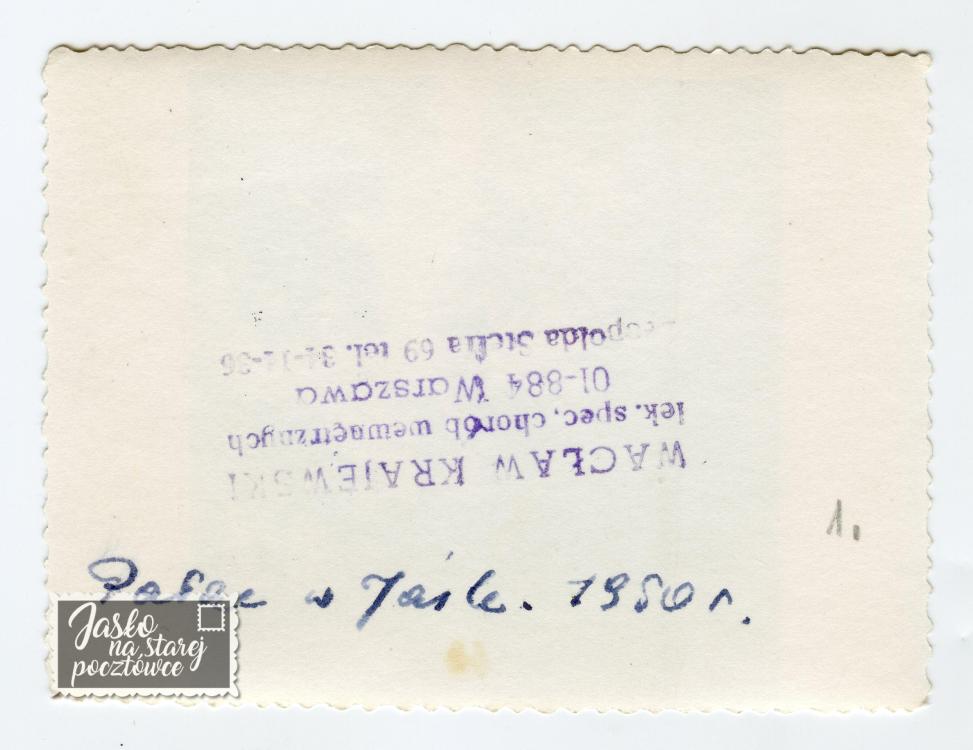 WACŁAW KRAJEWSKI
lek. spec. chorób wewnętrznych
01-884 Warszawa
69 tel.
1.
Pałac w Jaśle. 1950 r.
Jasło
na starej
pocztówce